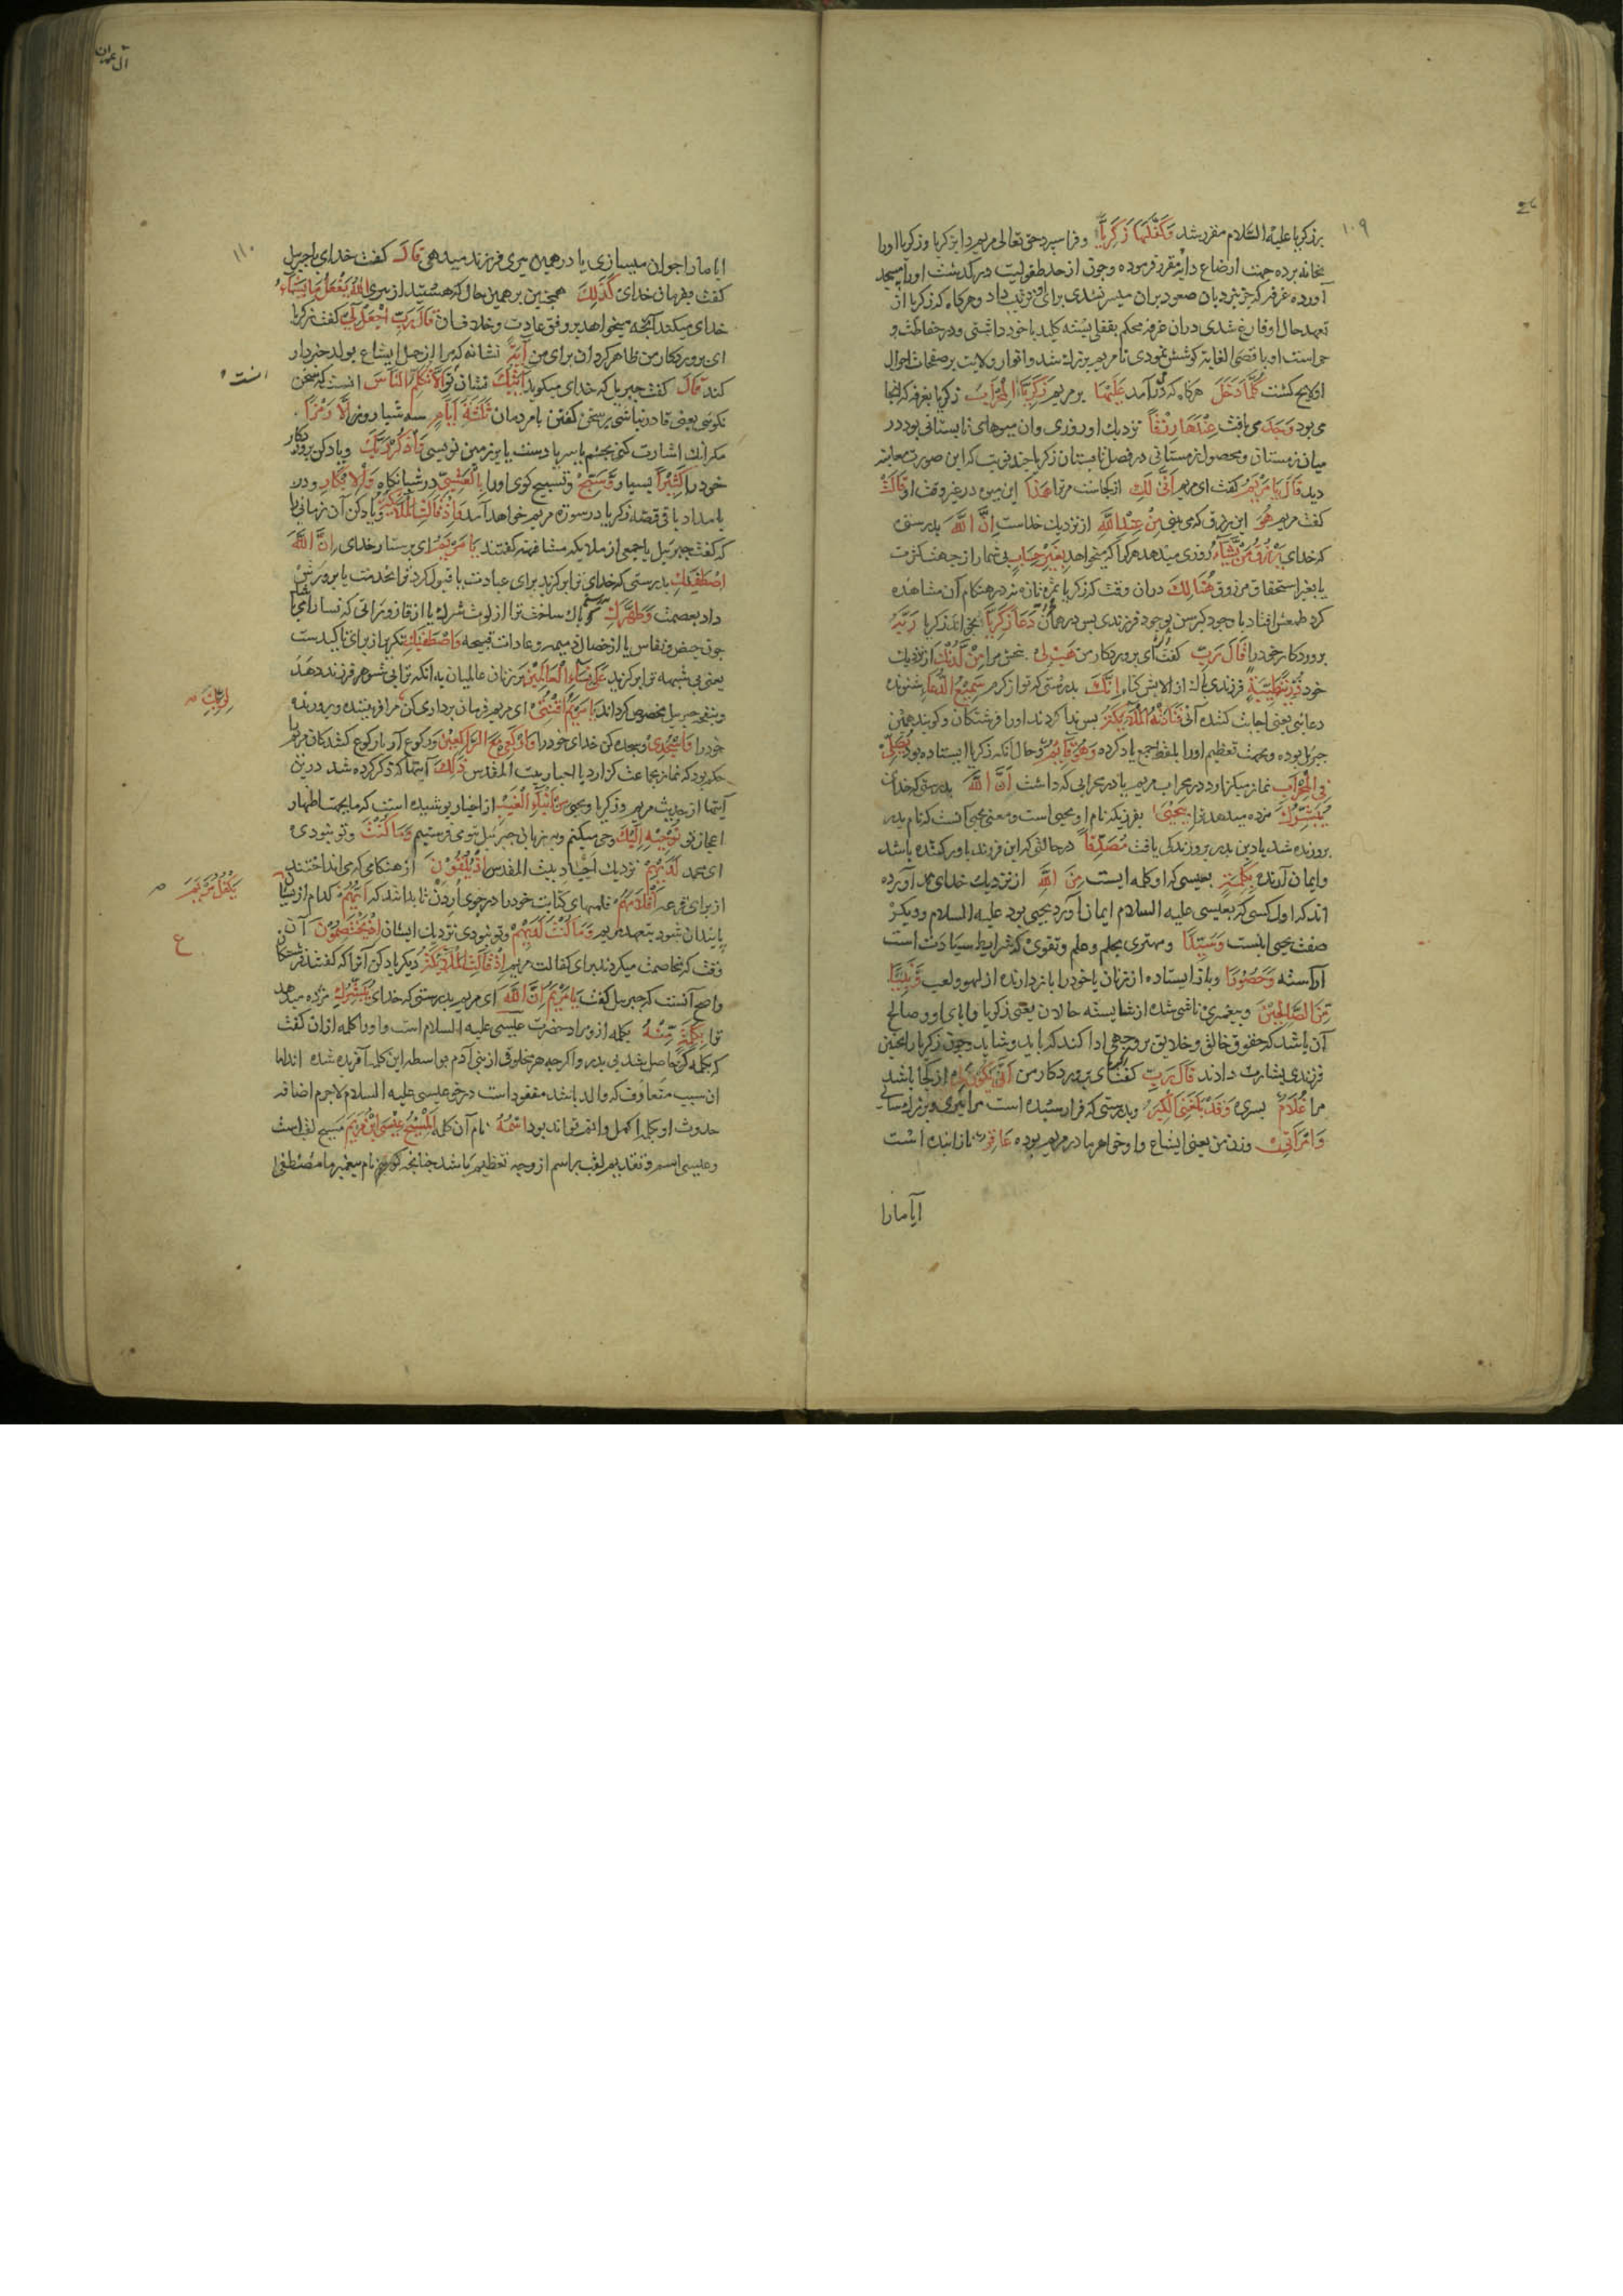 ۱۰۹
برزکریا علیه السّلام مقرر شد وَكَفَّلَهَا زَكَرِيَّا وفرا سپرد حق تعالی مریم را بزکریا وزکریا اورا
بخانه برده جهت ارضاع دایه مقرر فرموده وچون از حد طفولیت درگذشت اورا بمسجد
آورده غرفه که جز بنردبان صعود بران میسر نشدی برای او ترتیب داد وهرکاه که زکریا از
تعهد حال او فارغ شدی دران غرفه محکم بقفلی بسته کلید با خود داشتی ودر حفاظت و
حراست او باقصی الغایة کوشش نمودی تا مریم بزرك شد وانوار ولایت بر صفحات احوال
او لایح کشت كُلَّمَا دَخَلَ هرکاه که درآمد عَلَيْهَا بر مریم زَكَرِيَّا الْمِحْرَابَ زکریا بغرفه که انجا
می بود وَجَدَ می یافت عِنْدَهَا رِزْقًا نزدیك او روزی وان میوهای تابستانی بود در
میان زمستان ومحصول زمستانی در فصل تابستان زکریا چند نوبت که این صورت معاینه
دید قَالَ يَا مَرْيَمُ کفت ای مریم أَنَّى لَكِ از کجاست مرترا هَذَا این میوه در غیر وقت او قَالَتْ
کفت مریم هُوَ این رزق که می بینی مِنْ عِنْدِ اللَّهِ از نزدیك خداست إِنَّ اللَّهَ بدرستی
که خدای يَرْزُقُ مَنْ يَشَاءُ روزی میدهد هرکرا که میخواهد بِغَيْرِ حِسَابٍ بی شمار از جهت کثرت
یا بغیر استحقاق مرزوق هُنَالِكَ دران وقت که زکریا ثمره تازه نزد در هنکام آن مشاهده
کرد طمعش افتاد با وجود کبر سن بوجود فرزندی پس در همان دَعَا زَكَرِيَّا بخواند زکریا رَبَّهُ
پروردکار خودرا قَالَ رَبِّ کفت ای پروردکار من هَبْ لِي ببخش مرا مِنْ لَدُنْكَ از نزدیك
خود ذُرِّيَّةً طَيِّبَةً فرزندی پاك از الایش کناه إِنَّكَ بدرستی که تو از کرم سَمِيعُ الدُّعَاءِ شنونده
دعائی یعنی اجابت کننده آنی فَنَادَتْهُ الْمَلَائِكَةُ پس ندا کردند اورا فرشتکان وکویند همین
جبرئیل بوده وبجهت تعظیم اورا بلفظ جمع یاد کرده وَهُوَ قَائِمٌ وحال آنکه زکریا ایستاده بود يُصَلِّي
فِي الْمِحْرَابِ نماز میکزارد در محراب مریم یا در محرابی که داشت أَنَّ اللَّهَ بدرستی که خدای
يُبَشِّرُكَ مژده میدهد ترا بِيَحْيَى بفرزندیکه نام او یحیی است ومعنی یحیی آنست که نام پدر
بر وزنده شد یا دین پدر بروزندکی یافت مُصَدِّقًا درحالتی که این فرزند باور کننده باشد
وایمان آرنده بِكَلِمَةٍ بعیسی که او کلمه ایست مِنَ اللَّهِ از نزدیك خدای تع آورده
اند که اول کسی که بعیسی علیه السلام ایمان آورد یحیی بود علیه السلام ودیکر
صفت یحیی اینست وَسَيِّدًا ومهتری بحلم وعلم وتقوی که شرایط سیادتست
آراسته وَحَصُورًا وباز ایستاده از زنان یا خودرا بازدارنده از لهو ولعب وَنَبِيًّا
مِنَ الصَّالِحِينَ وپیغمبری ناشی شده از شایسته حالان یعنی زکریا وابای او وصالح
آن باشد که حقوق خالق وخلایق بر وجهی ادا کند که باید وشاید وچون زکریا را بچنین
فرزندی بشارت دادند قَالَ رَبِّ کفت ای پروردکار من أَنَّى يَكُونُ لِي از کجا باشد
مرا غُلَامٌ پسری وَقَدْ بَلَغَنِيَ الْكِبَرُ وبدرستی که فرا رسیده است مرا پیری وبزرك سالی
وَامْرَأَتِي وزن من یعنی ایشاع واو خواهر مادر مریم بوده عَاقِرٌ نازاینده است
آیا مارا
آل عمران
۱۱۰
ایا مارا جوان میسازی یا در همین پیری فرزند میدهی قَالَ کفت خدای یا جبریل
کفت بفرمان خدای كَذَلِكَ همچنین بر همین حال که هستید از پیری اللَّهُ يَفْعَلُ مَا يَشَاءُ
خدای میکند آنچه میخواهد بر وفق عادت وخلاف آن قَالَ رَبِّ اجْعَلْ لِي کفت زکریا
ای پروردکار من ظاهر کردان برای من آيَةً نشانه که مرا از حمل ایشاع بولد خبردار
کند قَالَ کفت جبریل که خدای میکوید آيَتُكَ نشان تو أَلَّا تُكَلِّمَ النَّاسَ انست که سخن
نکوئی یعنی قادر نباشی بر سخن کفتن بامردمان ثَلَاثَةَ أَيَّامٍ سه شبا روز إِلَّا رَمْزًا
مکر انك اشارت کنی بچشم یا سر یا دست یا بر زمین نویسی وَاذْكُرْ رَبَّكَ ویاد کن پروردکار
خودرا كَثِيرًا بسیار وَسَبِّحْ وتسبیح کوی اورا بِالْعَشِيِّ در شبانکاه وَالْإِبْكَارِ ودر
بامداد باقی قصهٔ زکریا در سوره مریم خواهد آمد وَإِذْ قَالَتِ الْمَلَائِكَةُ ویاد کن آن زمانی را
که کفت جبرئیل یا جمعی از ملایکه مشافهة کفتند يَا مَرْيَمُ ای پرستار خدای إِنَّ اللَّهَ
اصْطَفَاكِ بدرستی که خدای ترا برکزید برای عبادت یا قبول کرد ترا بخدمت یا پرورش
داد بعصمت وَطَهَّرَكِ وپاك ساخت ترا از لوث شرك یا از قاذوراتی که نسا را می باشد
چون حیض ونفاس یا از خصال ذمیمه وعادات قبیحه وَاصْطَفَاكِ تکریر از برای تاکیدست
یعنی بی شبهه ترا برکزید عَلَى نِسَاءِ الْعَالَمِينَ بر زنان عالمیان بدانکه ترا بی شوهر فرزند دهد
وبنفخه جبریل مخصوص کرداند يَا مَرْيَمُ اقْنُتِي ای مریم فرمان برداری کن مر افریننده وپرورنده
لِرَبِّكِ
خودرا وَاسْجُدِي وسجده کن خدای خودرا وَارْكَعِي مَعَ الرَّاكِعِينَ ورکوع آر با رکوع کنندکان مریم را
حکم بود که نماز بجماعت کزارد با احبار بیت المقدس ذَلِكَ آنها که ذکر کرده شد درین
آیتها از حدیث مریم وزکریا ویحیی مِنْ أَنْبَاءِ الْغَيْبِ از اخبار پوشیده است که ما بجهت اظهار
اعجاز تو نُوحِيهِ إِلَيْكَ وحی میکنم وبر زبانی جبرئیل بتو می فرستیم وَمَا كُنْتَ وتو نبودی
ای محمد لَدَيْهِمْ نزدیك احبار بیت المقدس إِذْ يُلْقُونَ آن هنکامی که می انداختند
از برای قرعه أَقْلَامَهُمْ قلمهای کتابت خودرا در جوی اردن تا بدانند که أَيُّهُمْ کدام از ایشان
يَكْفُلُ مَرْيَمَ
پایندان شود بتعهد مریم وَمَا كُنْتَ لَدَيْهِمْ وتو نبودی نزدیك ایشان إِذْ يَخْتَصِمُونَ آن
وقت که مخاصمت میکردند برای کفالت مریم إِذْ قَالَتِ الْمَلَائِكَةُ دیکر یاد کن آنرا که کفتند فرشتکان
ع
واصح آنست که جبریل کفت يَا مَرْيَمُ إِنَّ اللَّهَ ای مریم بدرستی که خدای يُبَشِّرُكِ مژده میدهد
ترا بِكَلِمَةٍ مِنْهُ بکلمه ازو مراد حضرت عیسی علیه السلام است واورا کلمه ازان کفت
که بکلمه کن حاصل شد بی پدر واکرچه هر مخلوقی از بنی آدم بواسطه این کلمه آفریده شده اند اما
ان سبب متعارف که والد باشد مفقود است در حق عیسی علیه السلام لاجرم اضافه
حدوث او بکلمه اکمل واتم تواند بود اسْمُهُ نام آن کلمه الْمَسِيحُ عِيسَى ابْنُ مَرْيَمَ مسیح لقبست
وعیسی اسم وتقدیم لقب بر اسم از وجه تعظیم باشد چنانچه کویی نام پیغمبر ما مصطفی